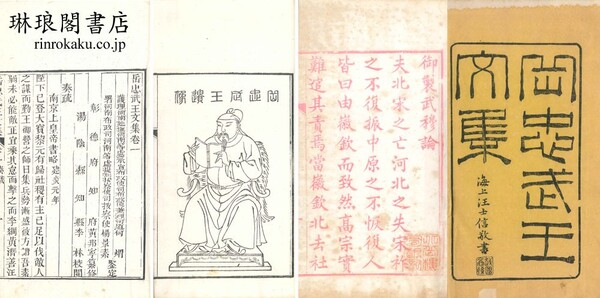 琳琅閣書店
rinrokaku.co.jp
岳忠武王文集
海上汪士信敬書
御製武穆論
夫北宋之亡河北之失宋祚
之不復振中原之不恢復人
皆曰由徽欽而致然高宗實
難逭其責焉當徽欽北去社
岳忠武王遺像
岳忠武王文集卷一
彰德府知府黃邦寧纂修
湯陰縣知縣李林校閱
奏疏
南京上皇帝書略 建炎元年
陛下已登大寶黎元有歸社稷有主已足以伐敵人
之謀而勤王御營之師日集兵勢漸盛彼方謂吾素
弱未必能敵正宜乘其怠而擊之而李綱黃潛善汪